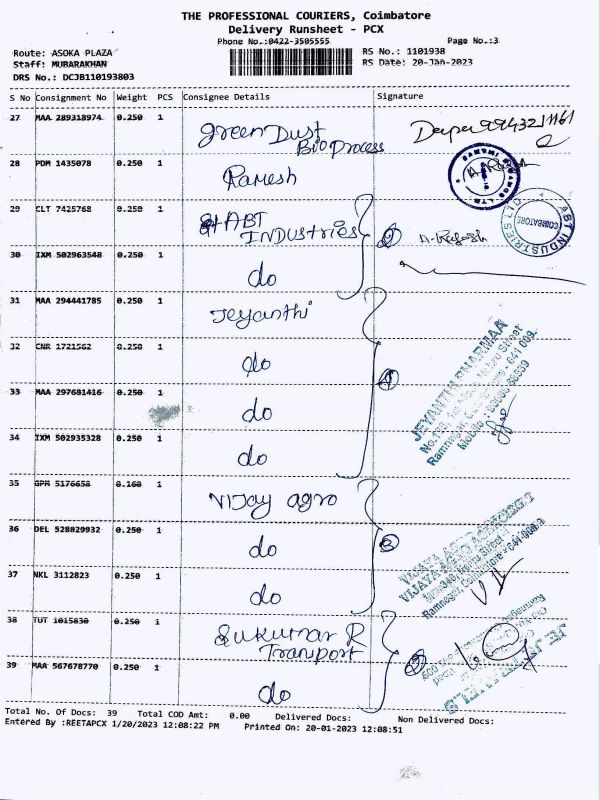 THE PROFESSIONAL COURIERS, Coimbatore
Delivery Runsheet - PCX
Phone No.:0422-3505555
Page No.:3
Route: ASOKA PLAZA
Staff: MUBARAKHAN
DRS No.: DCJB110193803
RS No.: 1101938
RS Date: 20-Jan-2023
S No Consignment No Weight PCS Consignee Details Signature
27 MAA 289318974 0.250 1 Green Dust Bio Process
28 PDM 1435078 0.250 1 Ramesh
29 CLT 7425768 0.250 1 ABT INDUSTRIES A-Rajesh
30 IXM 502963548 0.250 1 do
31 MAA 294441785 0.250 1 Jeyanthi
32 CNR 1721562 0.250 1 do
33 MAA 297681416 0.250 1 do
34 IXM 502935328 0.250 1 do
35 GPM 5176658 0.160 1 Vijay agro
36 DEL 528829932 0.250 1 do
37 NKL 3112823 0.250 1 do
38 TUT 1015830 0.250 1 Sukumar R Tranport
39 MAA 567678770 0.250 1 do
ABT INDUSTRIES LTD
COIMBATORE
JEYANTHI PHARMAA
Nehru Street
Ramnagar
641 009.
Mobile :
VIJAYA AGRO
Nehru Street
Ramnagar, Coimbatore - 641 009.
Total No. Of Docs: 39 Total COD Amt: 0.00 Delivered Docs: Non Delivered Docs:
Entered By :REETAPCX 1/20/2023 12:08:22 PM Printed On: 20-01-2023 12:08:51